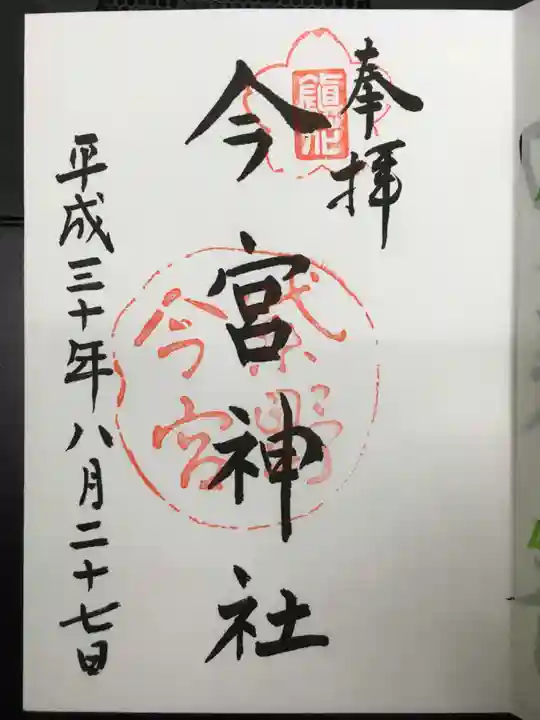 奉拝
今宮神社
平成三十年八月二十七日
紫野
今宮